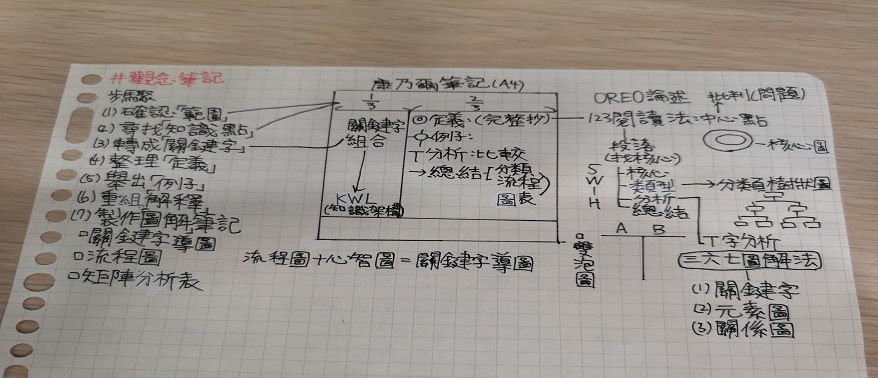 #觀念筆記
步驟
(1)確認「範圍」
(2)尋找「知識點」
(3)轉成「關鍵字」
(4)整理「定義」
(5)舉出「例子」
(6)重組解釋
(7)製作圖解筆記
□關鍵字導圖
□流程圖
□矩陣分析表
康乃爾筆記(A4)
1/3
2/3
關鍵字
組合
KWL
(知識架構)
◎定義:(完整抄)
例子:
T分析:比較
→總結[分類
流程
圖表
流程圖+心智圖=關鍵字導圖
OREO論述
批判(問題)
123閱讀法:中心點
核心圖
段落
(找核心)
5
W
1
H
核心
類型
分析
總結
→分類樹狀圖
A B
T字分析
□雙泡圖
三六七圖解法
(1)關鍵字
(2)元素圖
(3)關係圖